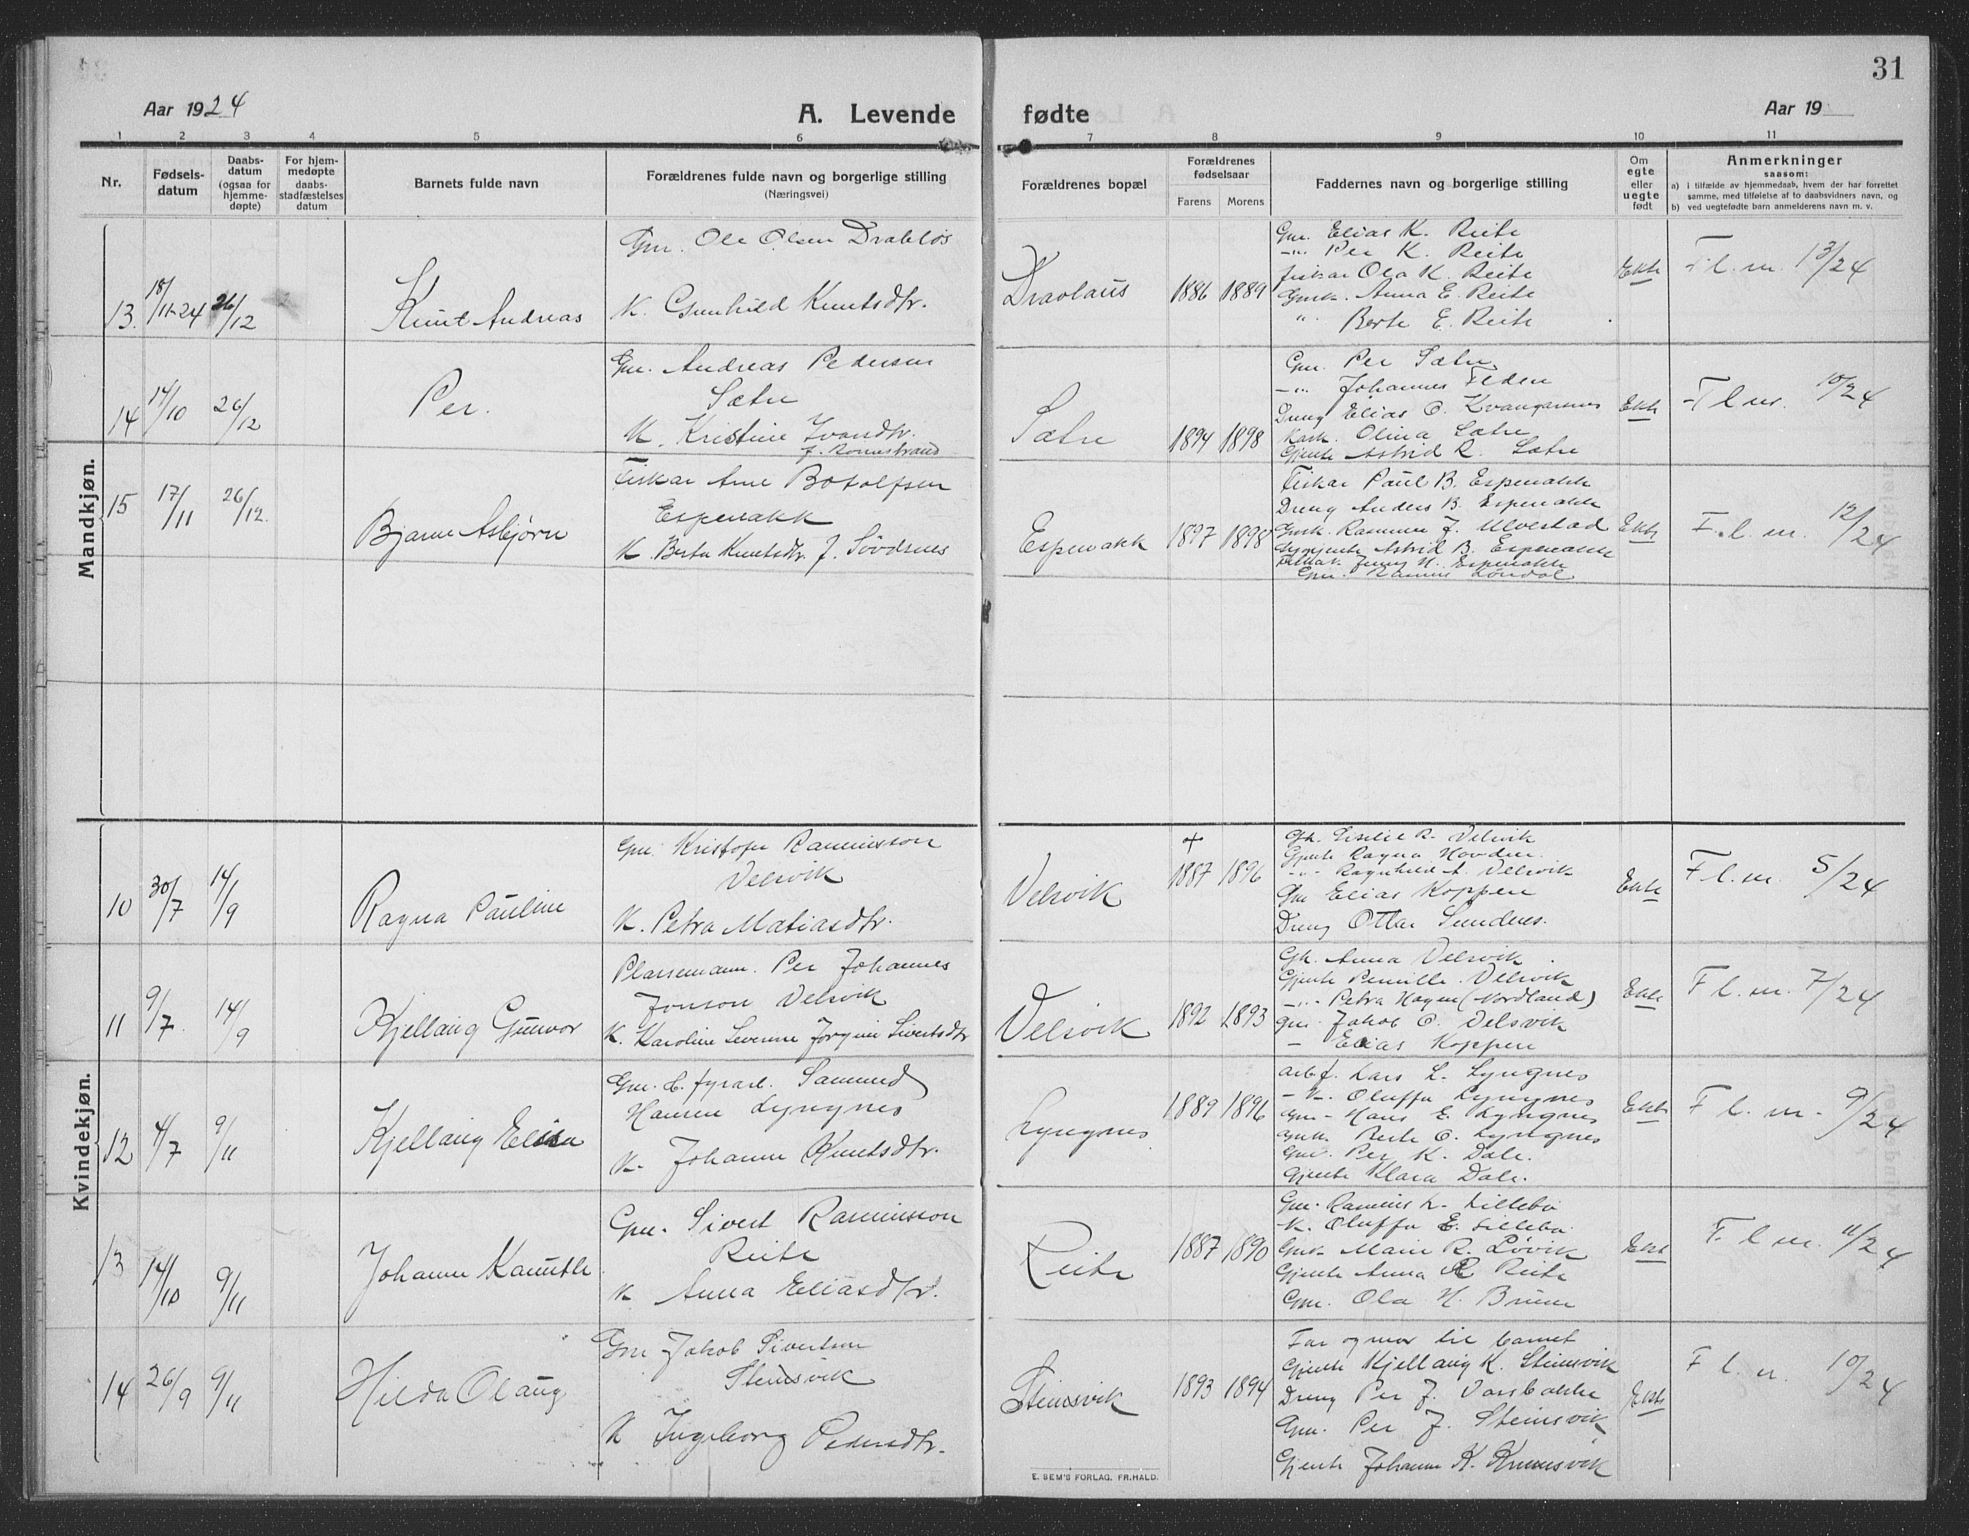 31
Aar 1924
A. Levende fødte
Aar 19
1 2 3 4 5 6 7 8 9 10 11
Nr.
Fødsels-
datum
Daabs-
datum
(ogsaa for
hjemme-
døpte)
For hjem-
medøpte
daabs-
stadfæstelses
datum
Barnets fulde navn
Forældrenes fulde navn og borgerlige stilling
(Næringsvei)
Forældrenes bopæl
Forældrenes
fødselsaar
Farens Morens
Faddernes navn og borgerlige stilling
Om
egte
eller
uegte
født
Anmerkninger
saasom:
a) i tilfælde av hjemmedaab, hvem der har forrettet
samme, med tilføielse af to daabsvidners navn, og
b) ved uegtefødte barn anmelderens navn m. v.
Mandkjøn.
13. 18/11-24 26/12
Knut Andreas
Gm. Ole Olsen Drabløs
K. Gunhild Knutsdtr.
Dravlaus
1886 1889
Gm. Elias K. Reite
-"- Per K. Reite
fiskar Ola K. Reite
Gmk. Anna E. Reite
" Berte E. Reite
Ekte
F. l. m. 13/24
14 14/10 26/12
Per.
Gm. Andreas Pedersen
Sætre
K. Kristine Ivarsdtr.
f. Romestrand
Sætre
1894 1898
Gm. Per Sætre
-"- Johannes Feden
Dreng Elias O. Kvangarsnes
Kark. Olina Sætre
Gjente Astrid R. Sætre
Ekte
F l m. 10/24
15 17/11 26/12.
Bjarne Asbjørn
Fiskar Arne Botolfsen
Espenakk
K. Berta Knutsdtr. f. Sövdsnes
Espenakk
1897 1898
Fiskar Paul B. Espenakk
Dreng Anders B. Espenakk
Gmk. Rasmus J. Ulvestad
Gjente Astrid B. Espenakk
Jenny H. Espenakk
Gm. Rasmus Løndal
Ekte
F. l. m. 12/24
Kvindekjøn.
10 30/7 14/9
Ragna Pauline
Gm. Kristofer Rasmusson
Velsvik
K. Petra Matiasdtr.
Velsvik
+
1887 1896
Gk. Eselie R. Velsvik
Gjente Ragna Hovden.
-"- Ragnhild A. Velsvik
Gm Elias Koppen
Dreng Ottar Sundnes.
Ekte
F l. m. 5/24
11 9/7. 14/9
Kjellaug Gunvor
Plassemann. Per Johannes
Jonson Velsvik
K. Karoline Severine Jørgine Sivertsdtr
Velsvik
1892 1893
Gk. Anna Velsvik.
Gjente Pernille. Velsvik
-"- Petra Hagen (Nordland)
Gm. Jakob O. Velsvik
- Elias Koppen
Ekte
F l. m. 7/24
12 4/7 9/11
Kjellaug Elisa
Gm. & fyrarb. Samund
Hansen Lyngnes
K. Johanne Knutsdtr.
Lyngnes
1889 1896
arbf. Lars L. Lyngnes
-K- Oluffa Lyngnes
Gm - Hans E. Lyngnes
Gmk. Berte O. Lyngnes
Gm. Per K. Dale.
Gjente Klara Dale.
Ekte
F l. m. 9/24
13 14/10 9/11
Johanne Kamille
Gm. Sivert Rasmusson
Reite
K Anna Eliasdtr.
Reite
1887 1890
Gm. Rasmus L. Lillebø
-K. Oluffa E. Lillebø.
Gmk Marie R. Løvik
Gjente Anna R Reite
Gm. Ola H. Brune
Ekte
F. l m. 11/24
14 26/9 9/11
Hilda Olaug
Gm Jakob Sivertsen
Steinsvik
K Ingeborg Pedersdtr.
Steinsvik
1893 1894
Far og mor til barnet
Gjente Kjellaug K. Steinsvik
Dreng Per J. Varsbakke
Gm. Per J. Steinsvik
Gjente Johanne K. Krumsvik
Ekte
F l. m. 10/24
E. SEM'S FORLAG. FR.HALD.